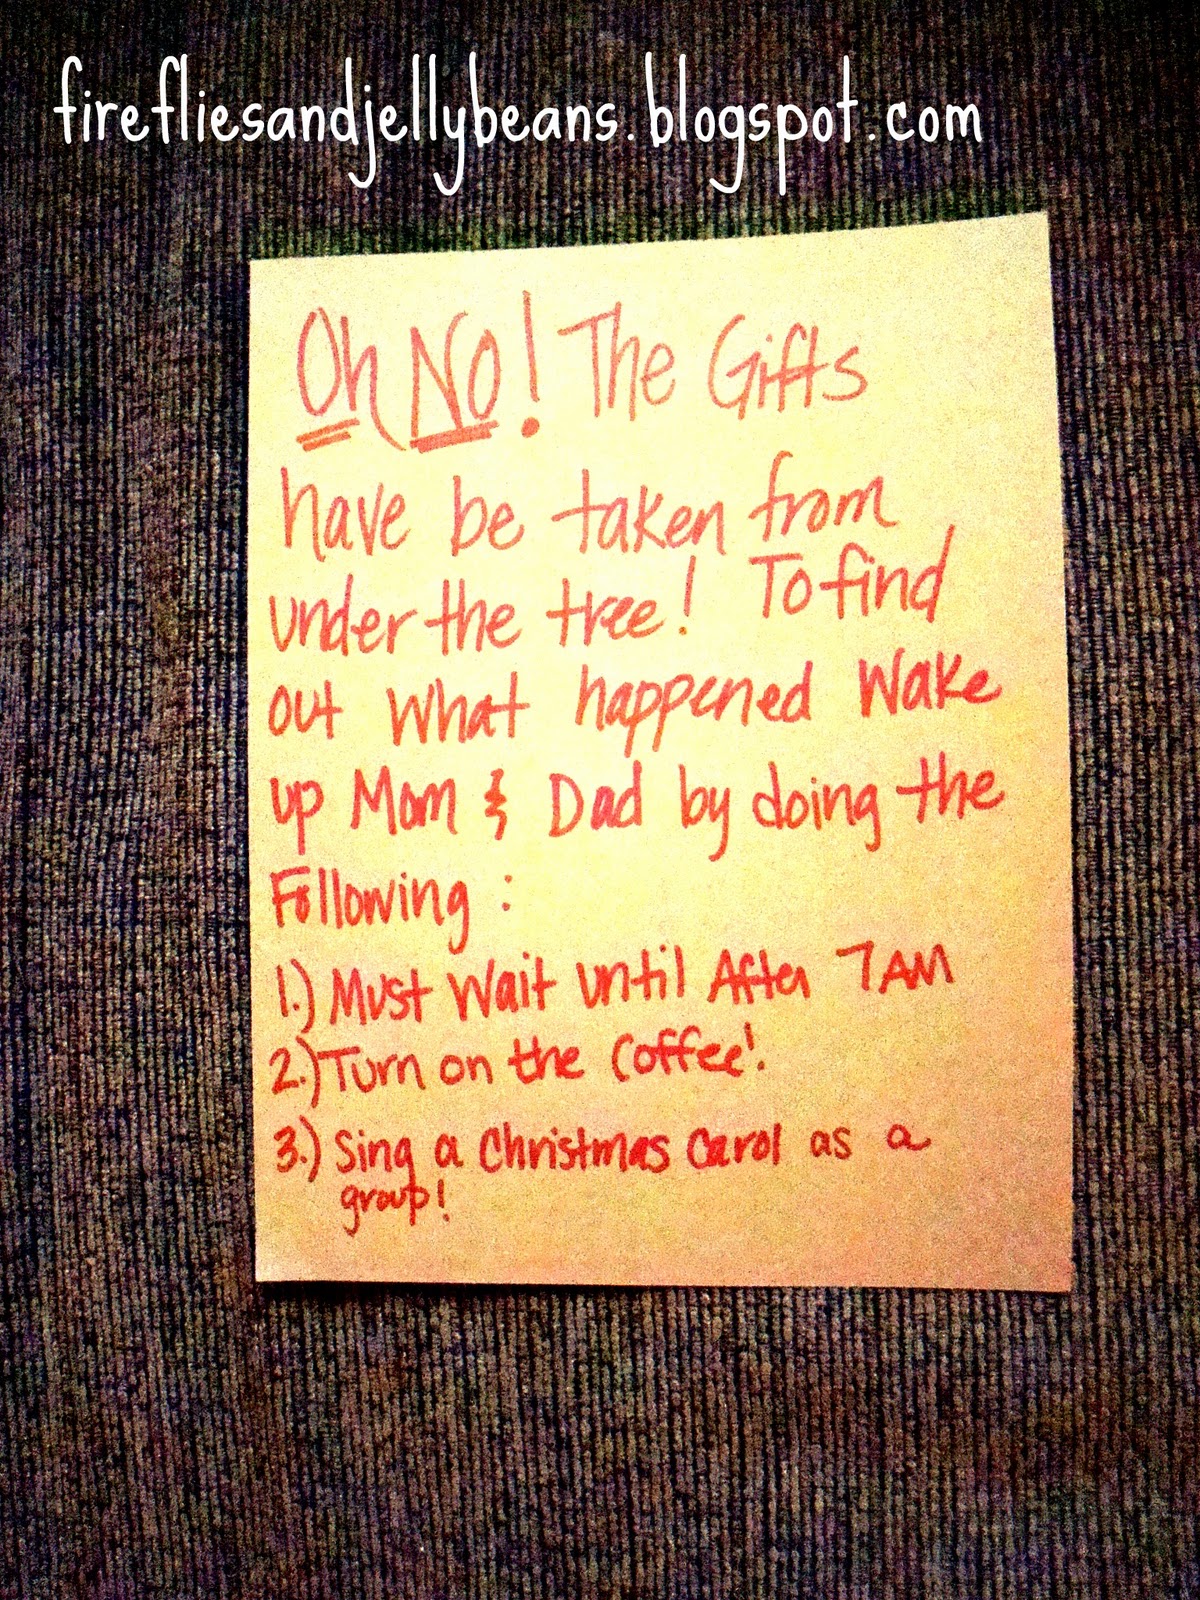 firefliesandjellybeans.blogspot.com
Oh No! The Gifts
have be taken from
under the tree! To find
out what happened Wake
up Mom & Dad by doing the
Following:
1.) Must Wait until After 7AM
2.) Turn on the Coffee!
3.) Sing a Christmas Carol as a
group!